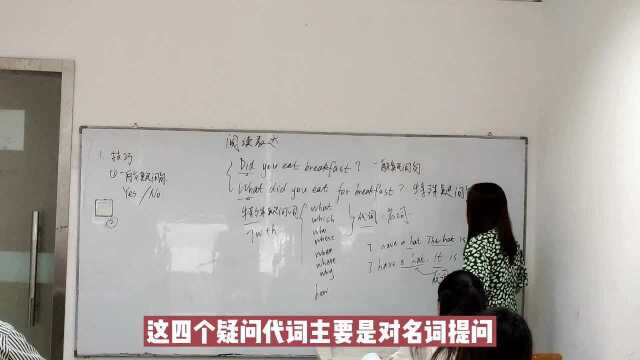 阅读表达
1. 技巧
①一般疑问句
Yes/No
Did you eat breakfast? 一般疑问句
What did you eat for breakfast? 特殊疑问句
特殊疑问词
7 wh
what
which
who
when
where
why
how
代词:名词
I have a hat. The hat is
I have a hat. It is
这四个疑问代词主要是对名词提问